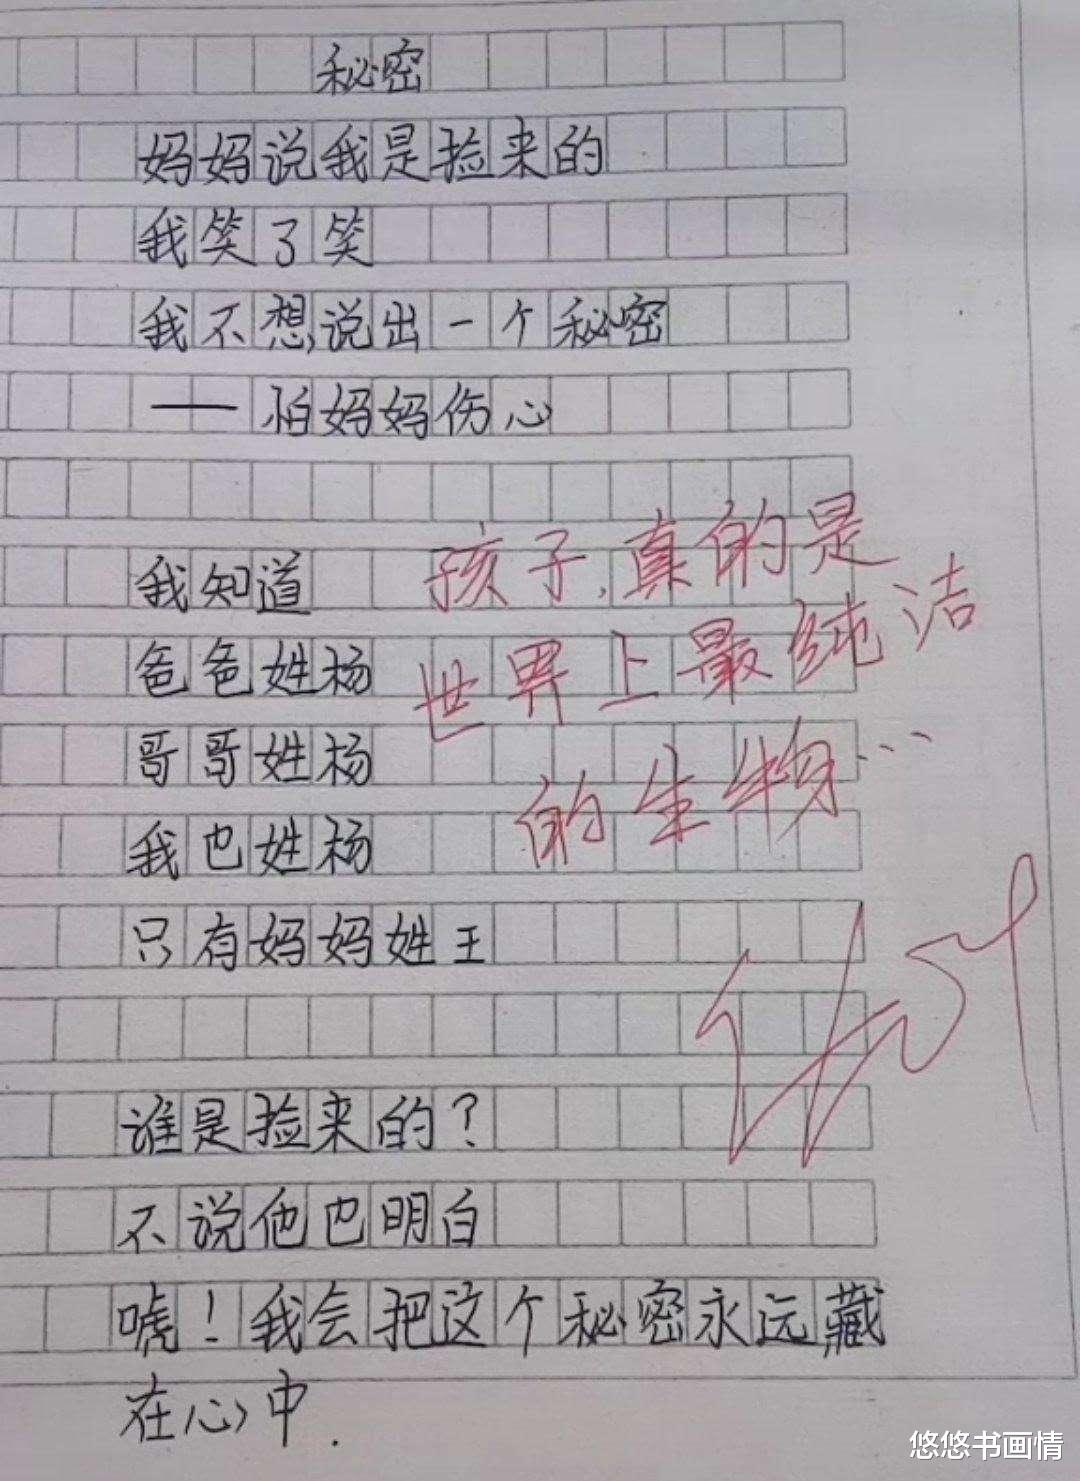 秘密
妈妈说我是捡来的
我笑了笑
我不想说出一个秘密
——怕妈妈伤心
我知道
爸爸姓杨
哥哥姓杨
我也姓杨
只有妈妈姓王
谁是捡来的?
不说他也明白
唬!我会把这个秘密永远藏
在心中.
孩子,真的是
世界上最纯洁
的生物…
悠悠书画情